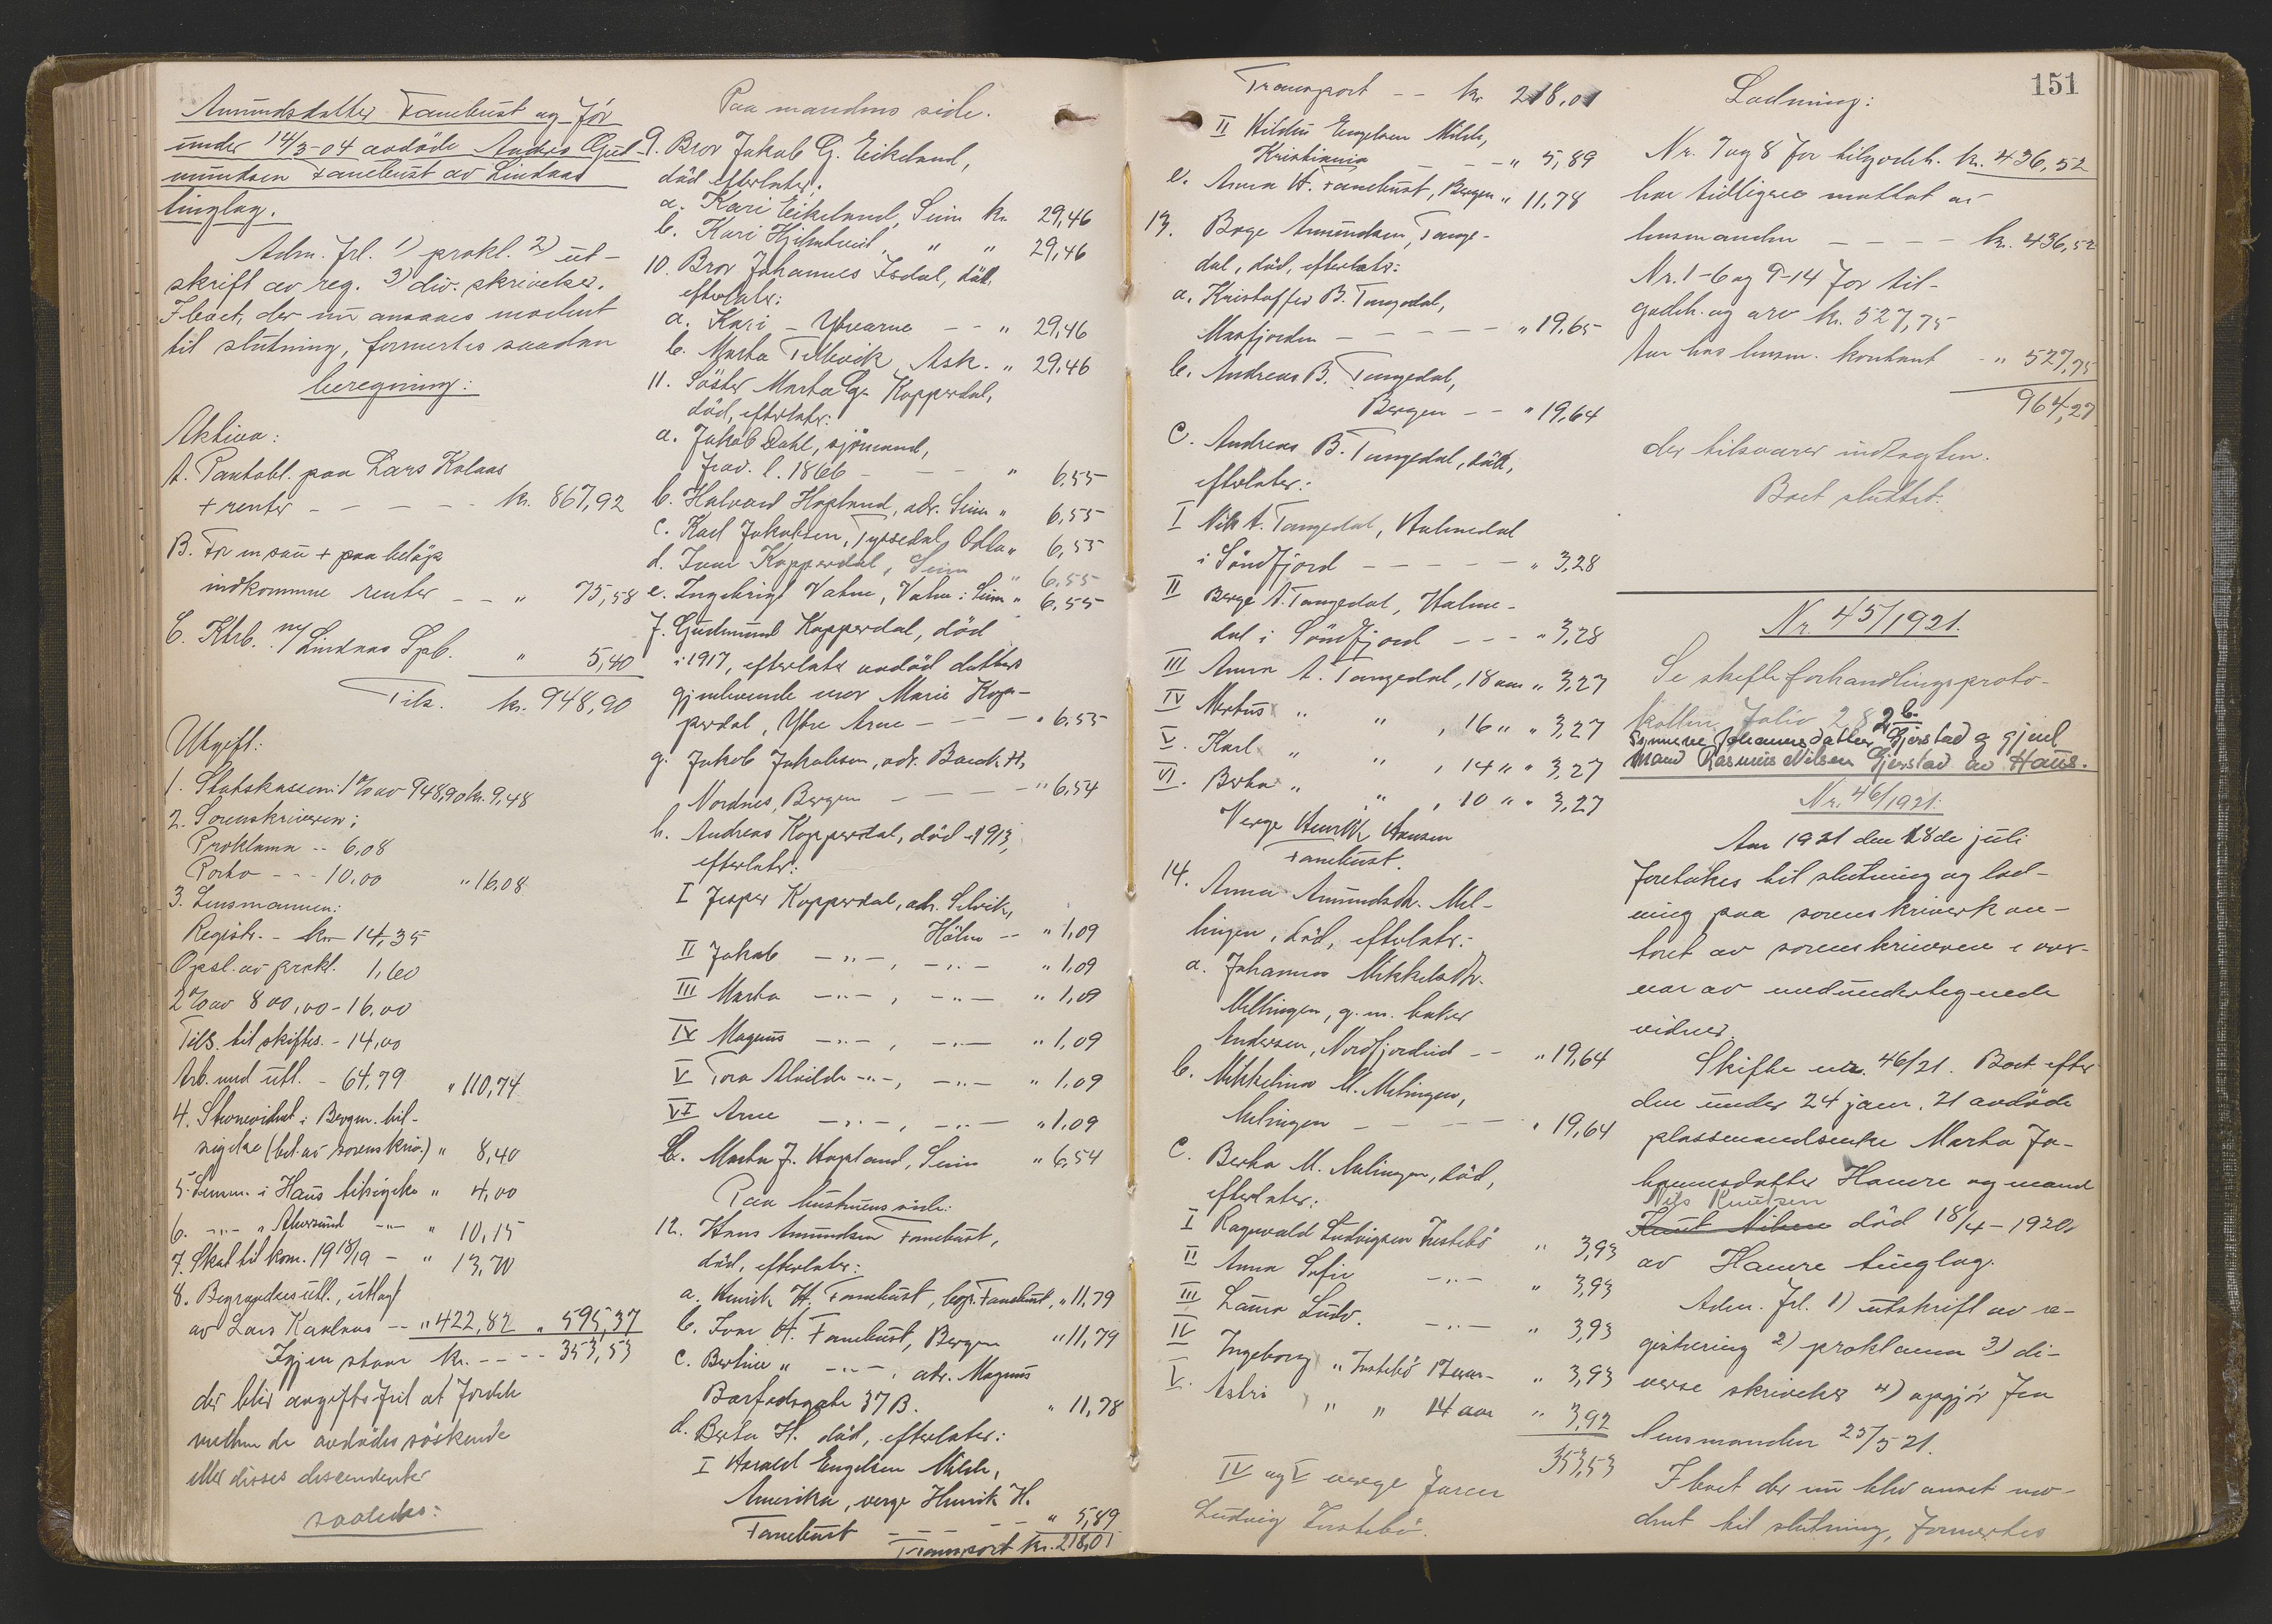 Amundsdatter Fanebust og för
under 14/3-04 avdöde Anders Gud-
mundsen Fanebust av Lindaas
tinglag.
Adm. frl. 1) prokl. 2) ut-
skrift av reg. 3) div. skrivelser.
I boet, der nu ansaaes modent
til slutning, formertes saadan
beregning:
Aktiva:
A. Pantobl. paa Lars Kolaas
+ renter - - - - - kr. 867,92
B. For en sau + paa beløp
indkomne renter - - " 75,58
C. Ktrb. m/ Lindaas Spb. " 5,40
Tils. kr. 948,90
Utgift:
1. Statskassen: 1% av 948,90 kr. 9,48
2. Sorenskriveren:
Proklama -- 6,08
Porto - - - 10,00 " 16,08
3. Lensmannen:
Registr. - kr 14,35
Opsl. av prokl. 1,60
2% av 800,00 - 16,00
Tils. til skiftes. - 14,00
Arb. med utl. - 64,79 " 110,74
4. Stevnevidnet i Bergen. til-
sigelse (bet. av sorenskriv.) " 8,40
5. Lensm. i Haus tilsigelse " 4,00
6. -"- " Alversund -"- " 10,15
7. Skat til kom. 1918/19 - " 13,70
8. Begravelsesutl., utlagt
av Lars Kaalaas -- " 422,82 " 595,37
Igjen staar kr. - - - - 353,53
der blir avgiftsfrit at fordele
mellem de avdödes söskende
eller disses descendenter
saaledes:
Paa mandens side.
9. Bror Jakob G. Eikeland,
död efterlater:
a. Kari Eikeland, Seim kr. 29,46
b. Kari Hjelmtveit, " " 29,46
10. Bror Johannes Isdal, död,
efterlater:
a. Kari - Ytrearne - - " 29,46
b. Marta Tellevik, Ask. " 29,46
11. Söster Marta G. Kopperdal,
död, efterlater:
a. Jakob Dahl, sjömand,
frav. l. 1866 - - - " 6,55
b. Halvard Hopland, adr. Seim " 6,55
c. Karl Jakobsen, Tyssedal, Odda " 6,55
d. Ivar Kopperdal, Seim " 6,55
e. Ingebrigt Vatne, Vatne i Seim " 6,55
f. Gudmund Kopperdal, död
i 1917, efterlater avdöd datters
gjenlevende mor Marie Kop-
perdal, Ytre Arne - - - " 6,55
g. Jakob Jakobsen, adr. Baadt,
Nordnes, Bergen - - - - " 6,54
h. Andreas Kopperdal, död 1913,
efterlater:
I Jesper Kopperdal, adr. Selvik,
Holm -- " 1,09
II Jakob -"-, -"- " 1,09
III Marta -"-, -"- " 1,09
IV Magnus -"-, -"- " 1,09
V Tora Alvilde -"-, -"- " 1,09
VI Arne -"-, -"- " 1,09
i. Marta J. Hopland, Seim " 6,54
Paa hustruens side:
12. Hans Amundsen Fanebust,
död, efterlater:
a. Henrik H. Fanebust, bopl. Fanebust, " 11,79
b. Ivar H. Fanebust, Bergen " 11,79
c. Bertine " -"-, adr. Magnus
Barfodsgate 37 B. " 11,78
d. Berta H. död, efterlater:
I Harald Engelsen Milde,
Amerika, verge Henrik H.
Fanebust - - - - - " 5,89
Transport kr. 218,01
151
Transport -- kr. 218,01
II Hildus Engelsen Milde,
Kristiania - - - " 5,89
e. Anna H. Fanebust, Bergen " 11,78
13. Børge Amundsen Tange-
dal, död, efterlater:
a. Kristoffer B. Tangedal,
Masfjorden - - - - - " 19,65
b. Andreas B. Tangedal,
Bergen - - " 19,64
C. Andreas B. Tangedal, död,
efterlater:
I Nils A. Tangedal, Holmedal
i Söndfjord - - - - - " 3,28
II Berge A. Tangedal, Holme-
dal i Söndfjord - - - " 3,28
III Anna A. Tangedal, 18 aar " 3,27
IV Mertus " " , 16 " " 3,27
V. Karl " " , 14 " " 3,27
VI. Berta " " , 10 " " 3,27
Verge Henrik Hansen
Fanebust.
14. Anna Amundsdtr. Mel-
lingen, död, efterlater:
a. Johanna Mikkelsdtr.
Mellingen, g. m. baker
Andersen, Nordfjordeid - - " 19,64
b. Mikkeline M. Melingen,
Melingen - - - - - " 19,64
C. Berta M. Melingen, död,
efterlater:
I Ragnvald Ludvigsen Tustebö " 3,93
II Anna Sofie -"- " 3,93
III Laura Ludv. -"- " 3,93
IV Ingeborg " Tustebö 17 aar - " 3,93
V. Astri " " 14 aar " 3,92
353,53
IV og V verge faren
Ludvig Tustebö.
Lodning:
Nr. 7 og 8 for tilgodeh. kr. 436,52
har tidligere mottat av
lensmanden - - - - kr. 436,52
Nr. 1-6 og 9-14 for til-
godeh. og arv kr. 527,75
tar hos lensm. kontant - " 527,75
964,27
der tilsvarer indtægten.
Boet sluttet.
Nr. 45/1921.
Se skifteforhandlingsproto-
kollen folio 282 b.
Synneve Johannesdatter Gjerstad og gjenl
Mand Rasmus Nilsen Gjerstad av Haus.
Nr. 46/1921.
Aar 1921 den 18de juli
foretokes til slutning og lod-
ning paa sorenskriverkon-
toret av sorenskriveren i over-
vær av medundertegnede
vidner,
Skifte nr. 46/21. Boet efter
den under 24 jan. 21 avdöde
plassmandsenke Marta Jo-
hannesdatter Hamre og mand
Nils Knutsen
Knut Nilsen död 18/4-1920
av Hamre tinglag.
Adm. frl. 1) utskrift av re-
gistrering 2) proklama 3) di-
verse skrivelser 4) opgjör fra
lensmanden 25/5 21.
I boet der nu blev anset mo-
dent til slutning, formertes